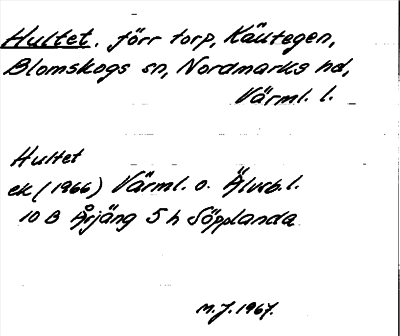 Hultet, förr torp, Käutegen,
Blomskogs sn, Nordmarks hd,
Värml. l.
Hultet
ek (1966) Värml. o. Älvsb. l.
10 B Årjäng 5 h Söpplanda
M.J. 1967.